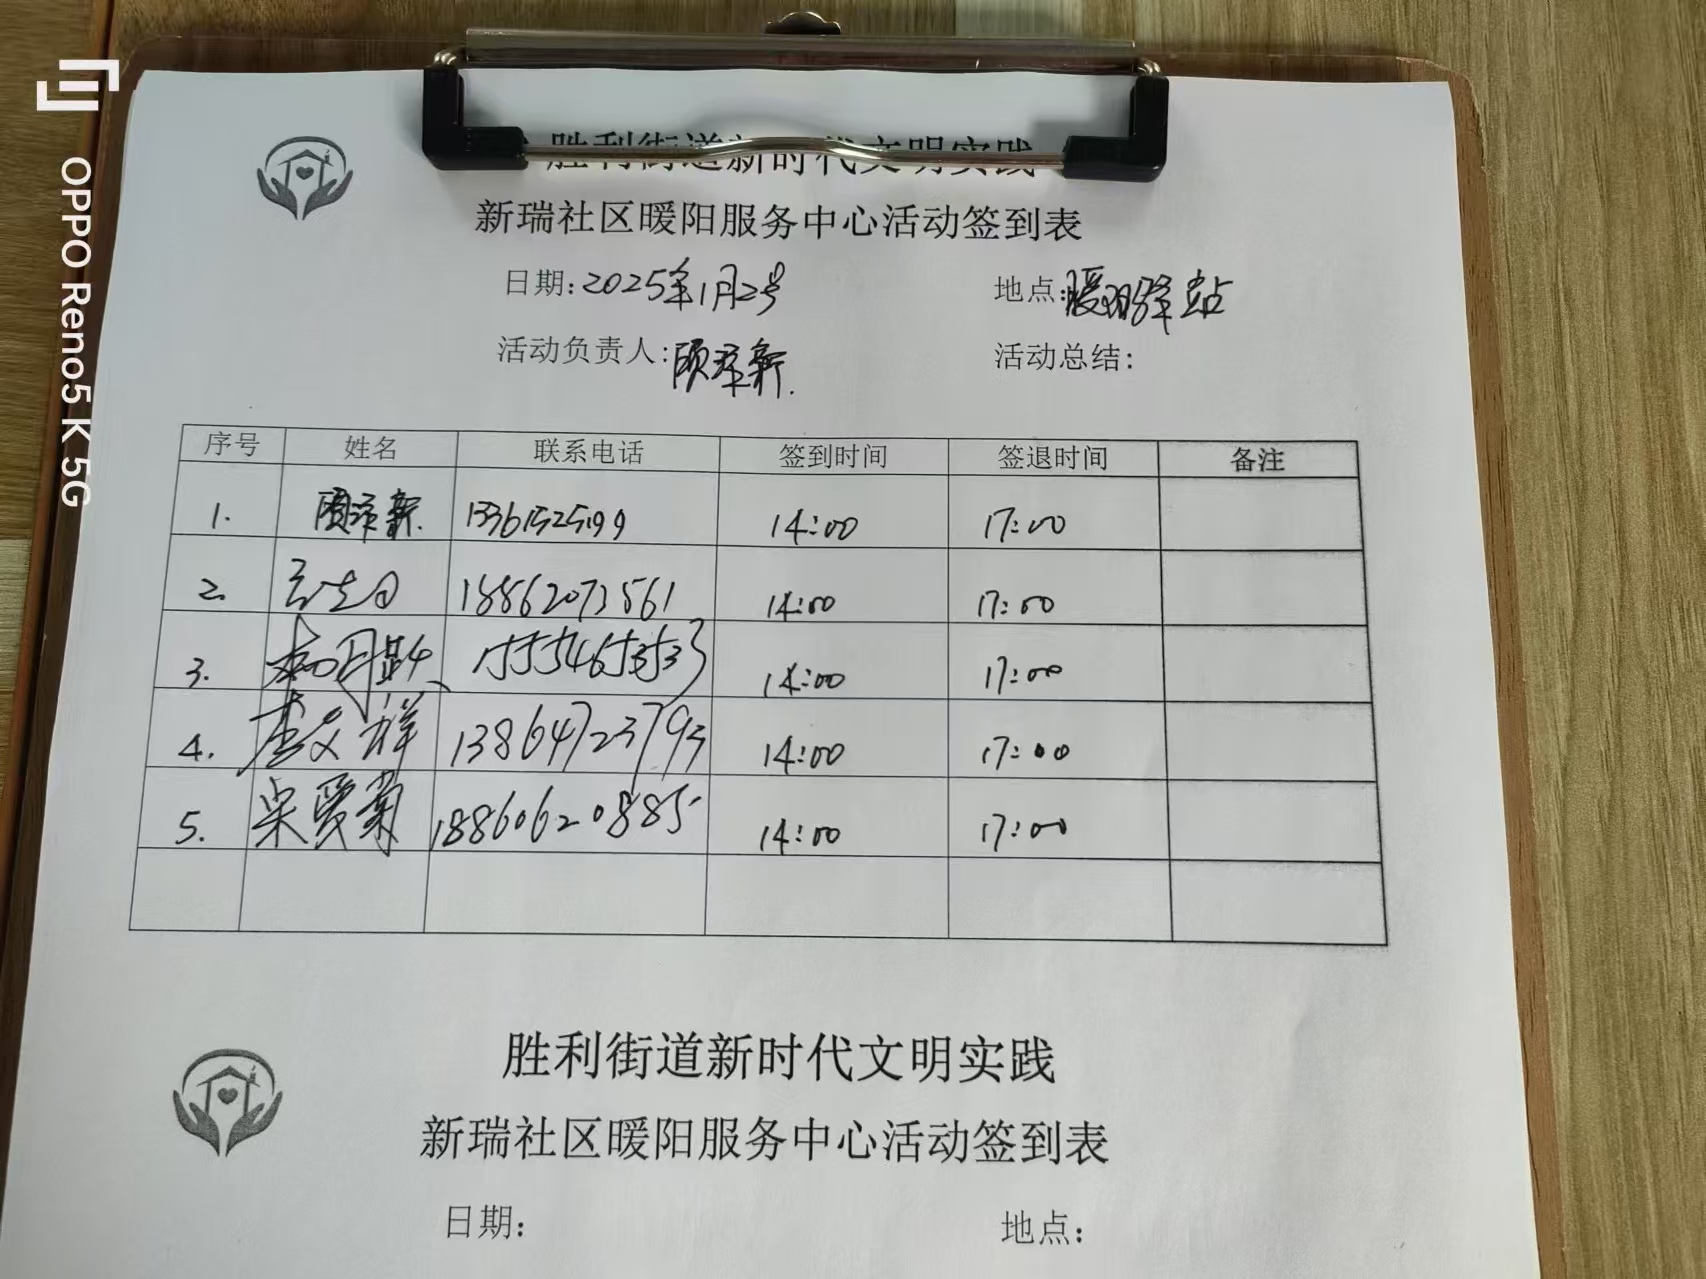 OPPO Reno5 K 5G
胜利街道新时代文明实践
新瑞社区暖阳服务中心活动签到表
日期:2025年1月2号 地点:暖阳驿站
活动负责人: 活动总结:
序号 姓名 联系电话 签到时间 签退时间 备注
1. 14:00 17:00
2. 14:00 17:00
3. 14:00 17:00
4. 李文祥 13864723793 14:00 17:00
5. 宋爱菊 18860620885 14:00 17:00
胜利街道新时代文明实践
新瑞社区暖阳服务中心活动签到表
日期: 地点: